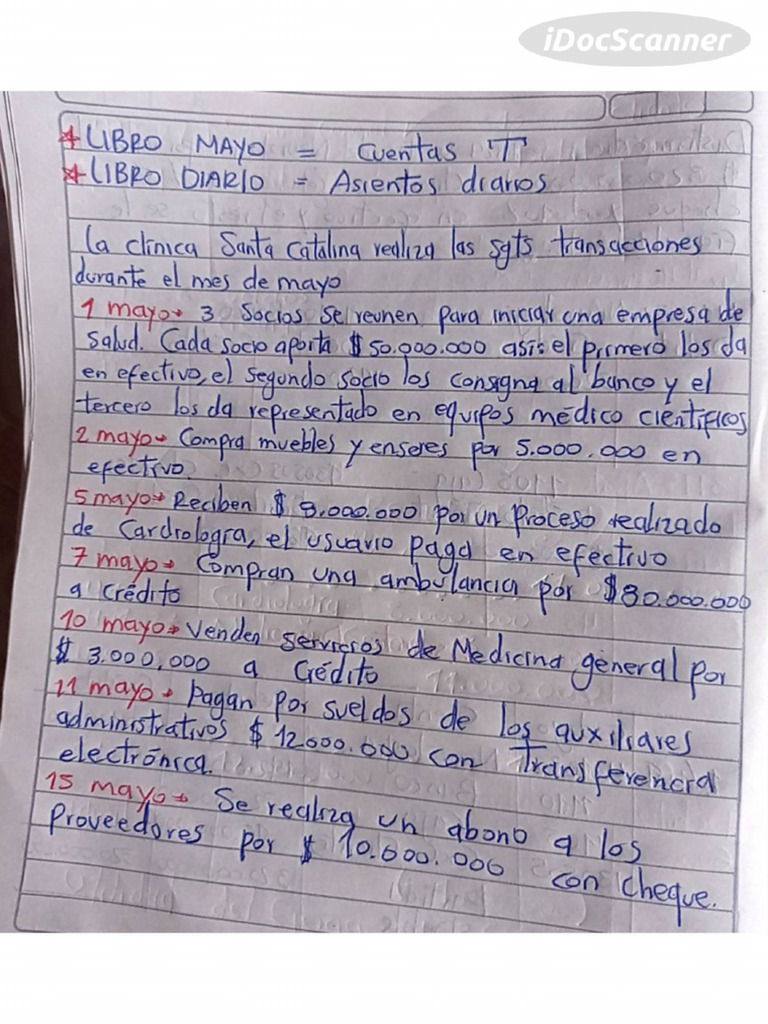 iDocScanner
* LIBRO MAYO = Cuentas T
* LIBRO DIARIO = Asientos diarios
La clínica Santa Catalina realiza las sgts transacciones
durante el mes de mayo
1 mayo→ 3 Socios se reunen para iniciar una empresa de
Salud. Cada socio aporta $50.000.000 asis: el primero los da
en efectivo, el segundo socio los consigna al banco y el
tercero los da representado en equipos médico científicos
2 mayo→ Compra muebles y enseres por 5.000.000 en
efectivo.
5 mayo→ Reciben $ 8.000.000 por un Proceso realizado
de Cardiología, el usuario paga en efectivo
7 mayo→ Compran una ambulancia por $80.000.000
a crédito
10 mayo→ Venden servicios de Medicina general por
$ 3.000,000 a Crédito
11 mayo→ Pagan por sueldos de los auxiliares
administrativos $ 12.000.000 con Transferencia
electrónica.
15 mayo→ Se realiza un abono a los
Proveedores por $ 10.000.000 con cheque.